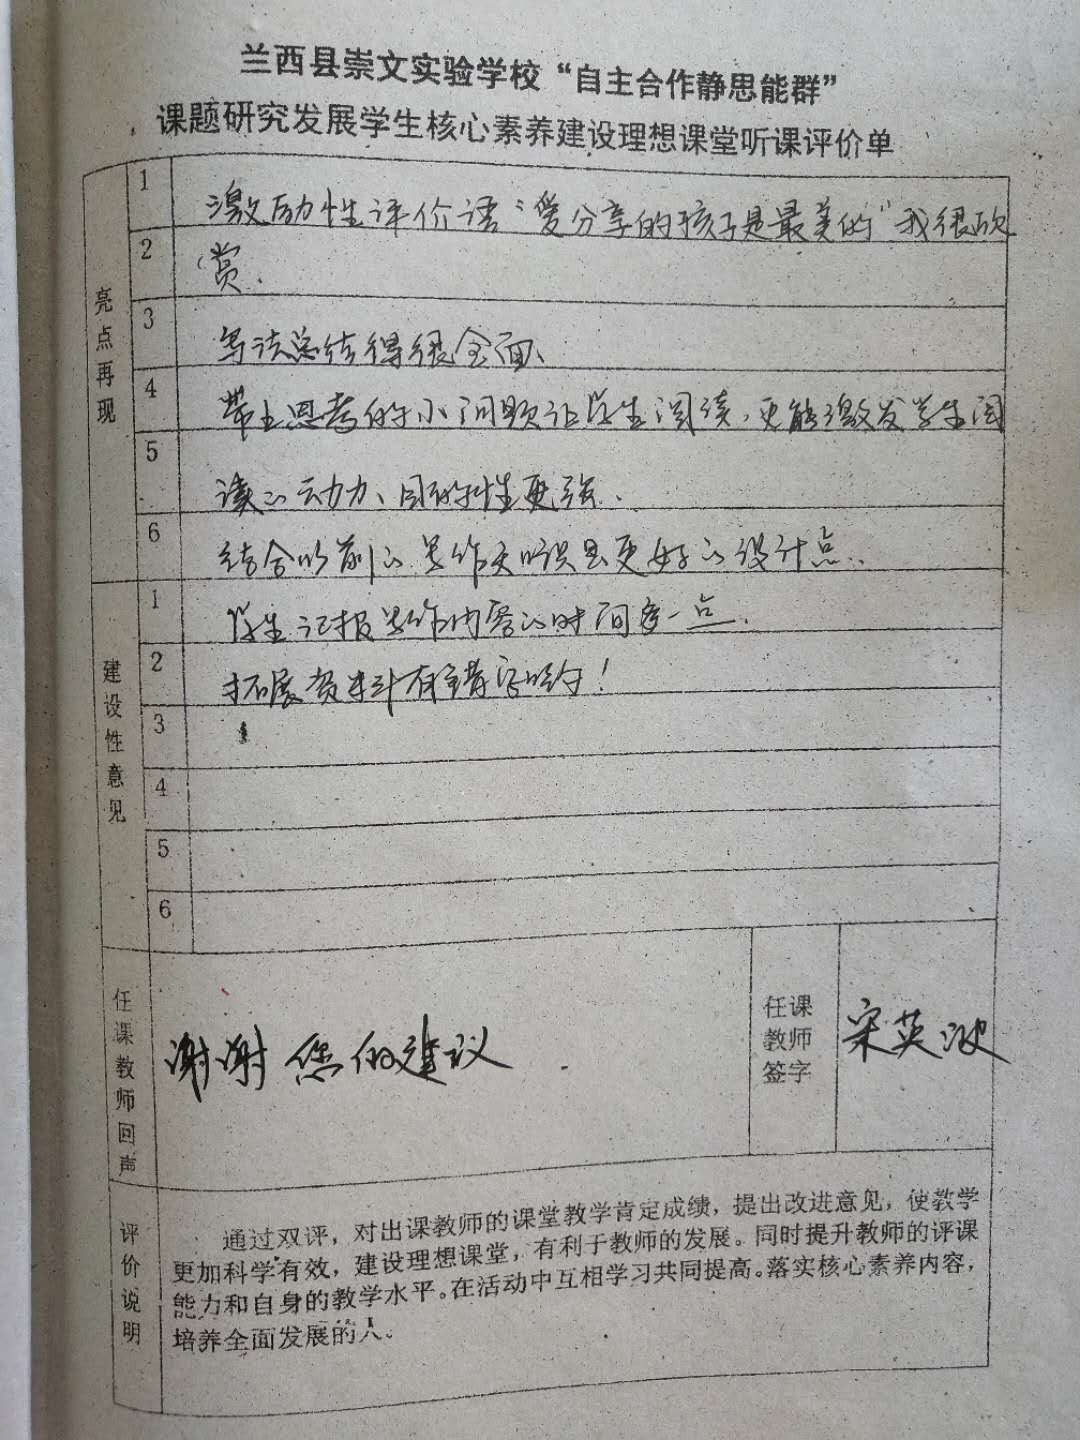 兰西县崇文实验学校“自主合作静思能群”
课题研究发展学生核心素养建设理想课堂听课评价单
亮点再现
1 激励性评价语“爱分享的孩子是最美的”我很欣
2 赏.
3 写法总结得很全面、
4 带上思考的小问题让学生阅读,更能激发学生阅
5 读的动力、目的性更强、
6 结合以前的是更好的设计点.
建设性意见
1 学生汇报内容的时间多一点.
2 拓展资料有错字哟!
3
4
5
6
任课教师回声
谢谢您的建议
任课
教师
签字
宋英波
评价说明
通过双评，对出课教师的课堂教学肯定成绩，提出改进意见，使教学
更加科学有效，建设理想课堂，有利于教师的发展。同时提升教师的评课
能力和自身的教学水平。在活动中互相学习共同提高。落实核心素养内容，
培养全面发展的人。